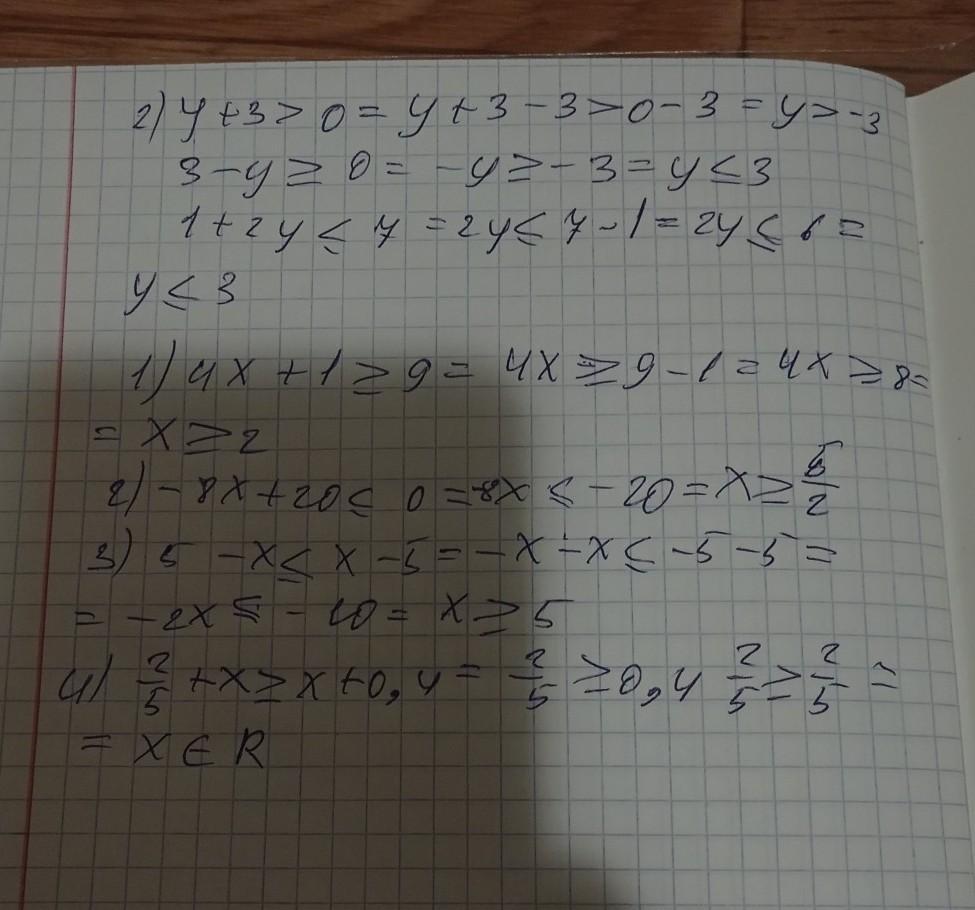 2) y + 3 > 0 = y + 3 - 3 > 0 - 3 = y > -3
3 - y ≥ 0 = -y ≥ -3 = y ≤ 3
1 + 2y ≤ 7 = 2y ≤ 7 - 1 = 2y ≤ 6 =
y ≤ 3
1) 4x + 1 ≥ 9 = 4x ≥ 9 - 1 = 4x ≥ 8 =
= x ≥ 2
2) -8x + 20 ≤ 0 = -8x ≤ -20 = x ≥ 5/2
3) 5 - x ≤ x - 5 = -x - x ≤ -5 - 5 =
= -2x ≤ -10 = x ≥ 5
4) 2/5 + x ≥ x + 0,4 = 2/5 ≥ 0,4 2/5 ≥ 2/5 =
= x ∈ R